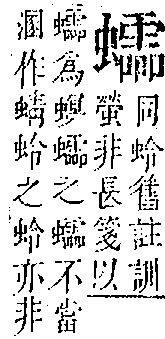 蠕
同蛉舊註訓
螢非長箋以
蠕爲螟蠕之蠕不當
溷作蜻蛉之蛉亦非